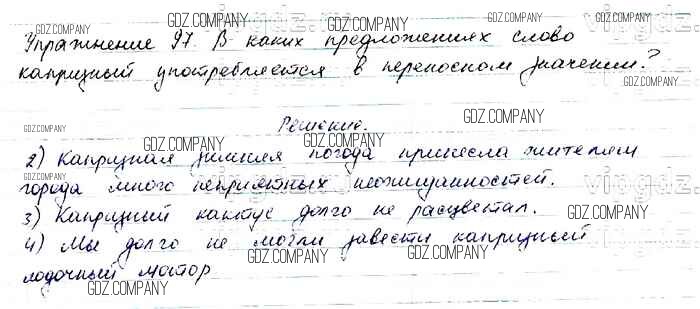 GDZ.COMPANY GDZ.COMPANY GDZ.COMPANY GDZ.COMPANY
Упражнение 97. В каких предложениях слово
капризный употребляется в переносном значении?
GDZ.COMPANY GDZ.COMPANY GDZ.COMPANY
Решение.
GDZ.COMPANY GDZ.COMPANY GDZ.COMPANY
2) Капризная зимняя погода принесла жителям
города много неприятных неожиданностей.
GDZ.COMPANY GDZ.COMPANY
3) Капризный кактус долго не расцветал.
GDZ.COMPANY GDZ.COMPANY
4) Мы долго не могли завести капризный
лодочный мотор
GDZ.COMPANY GDZ.COMPANY GDZ.COMPANY